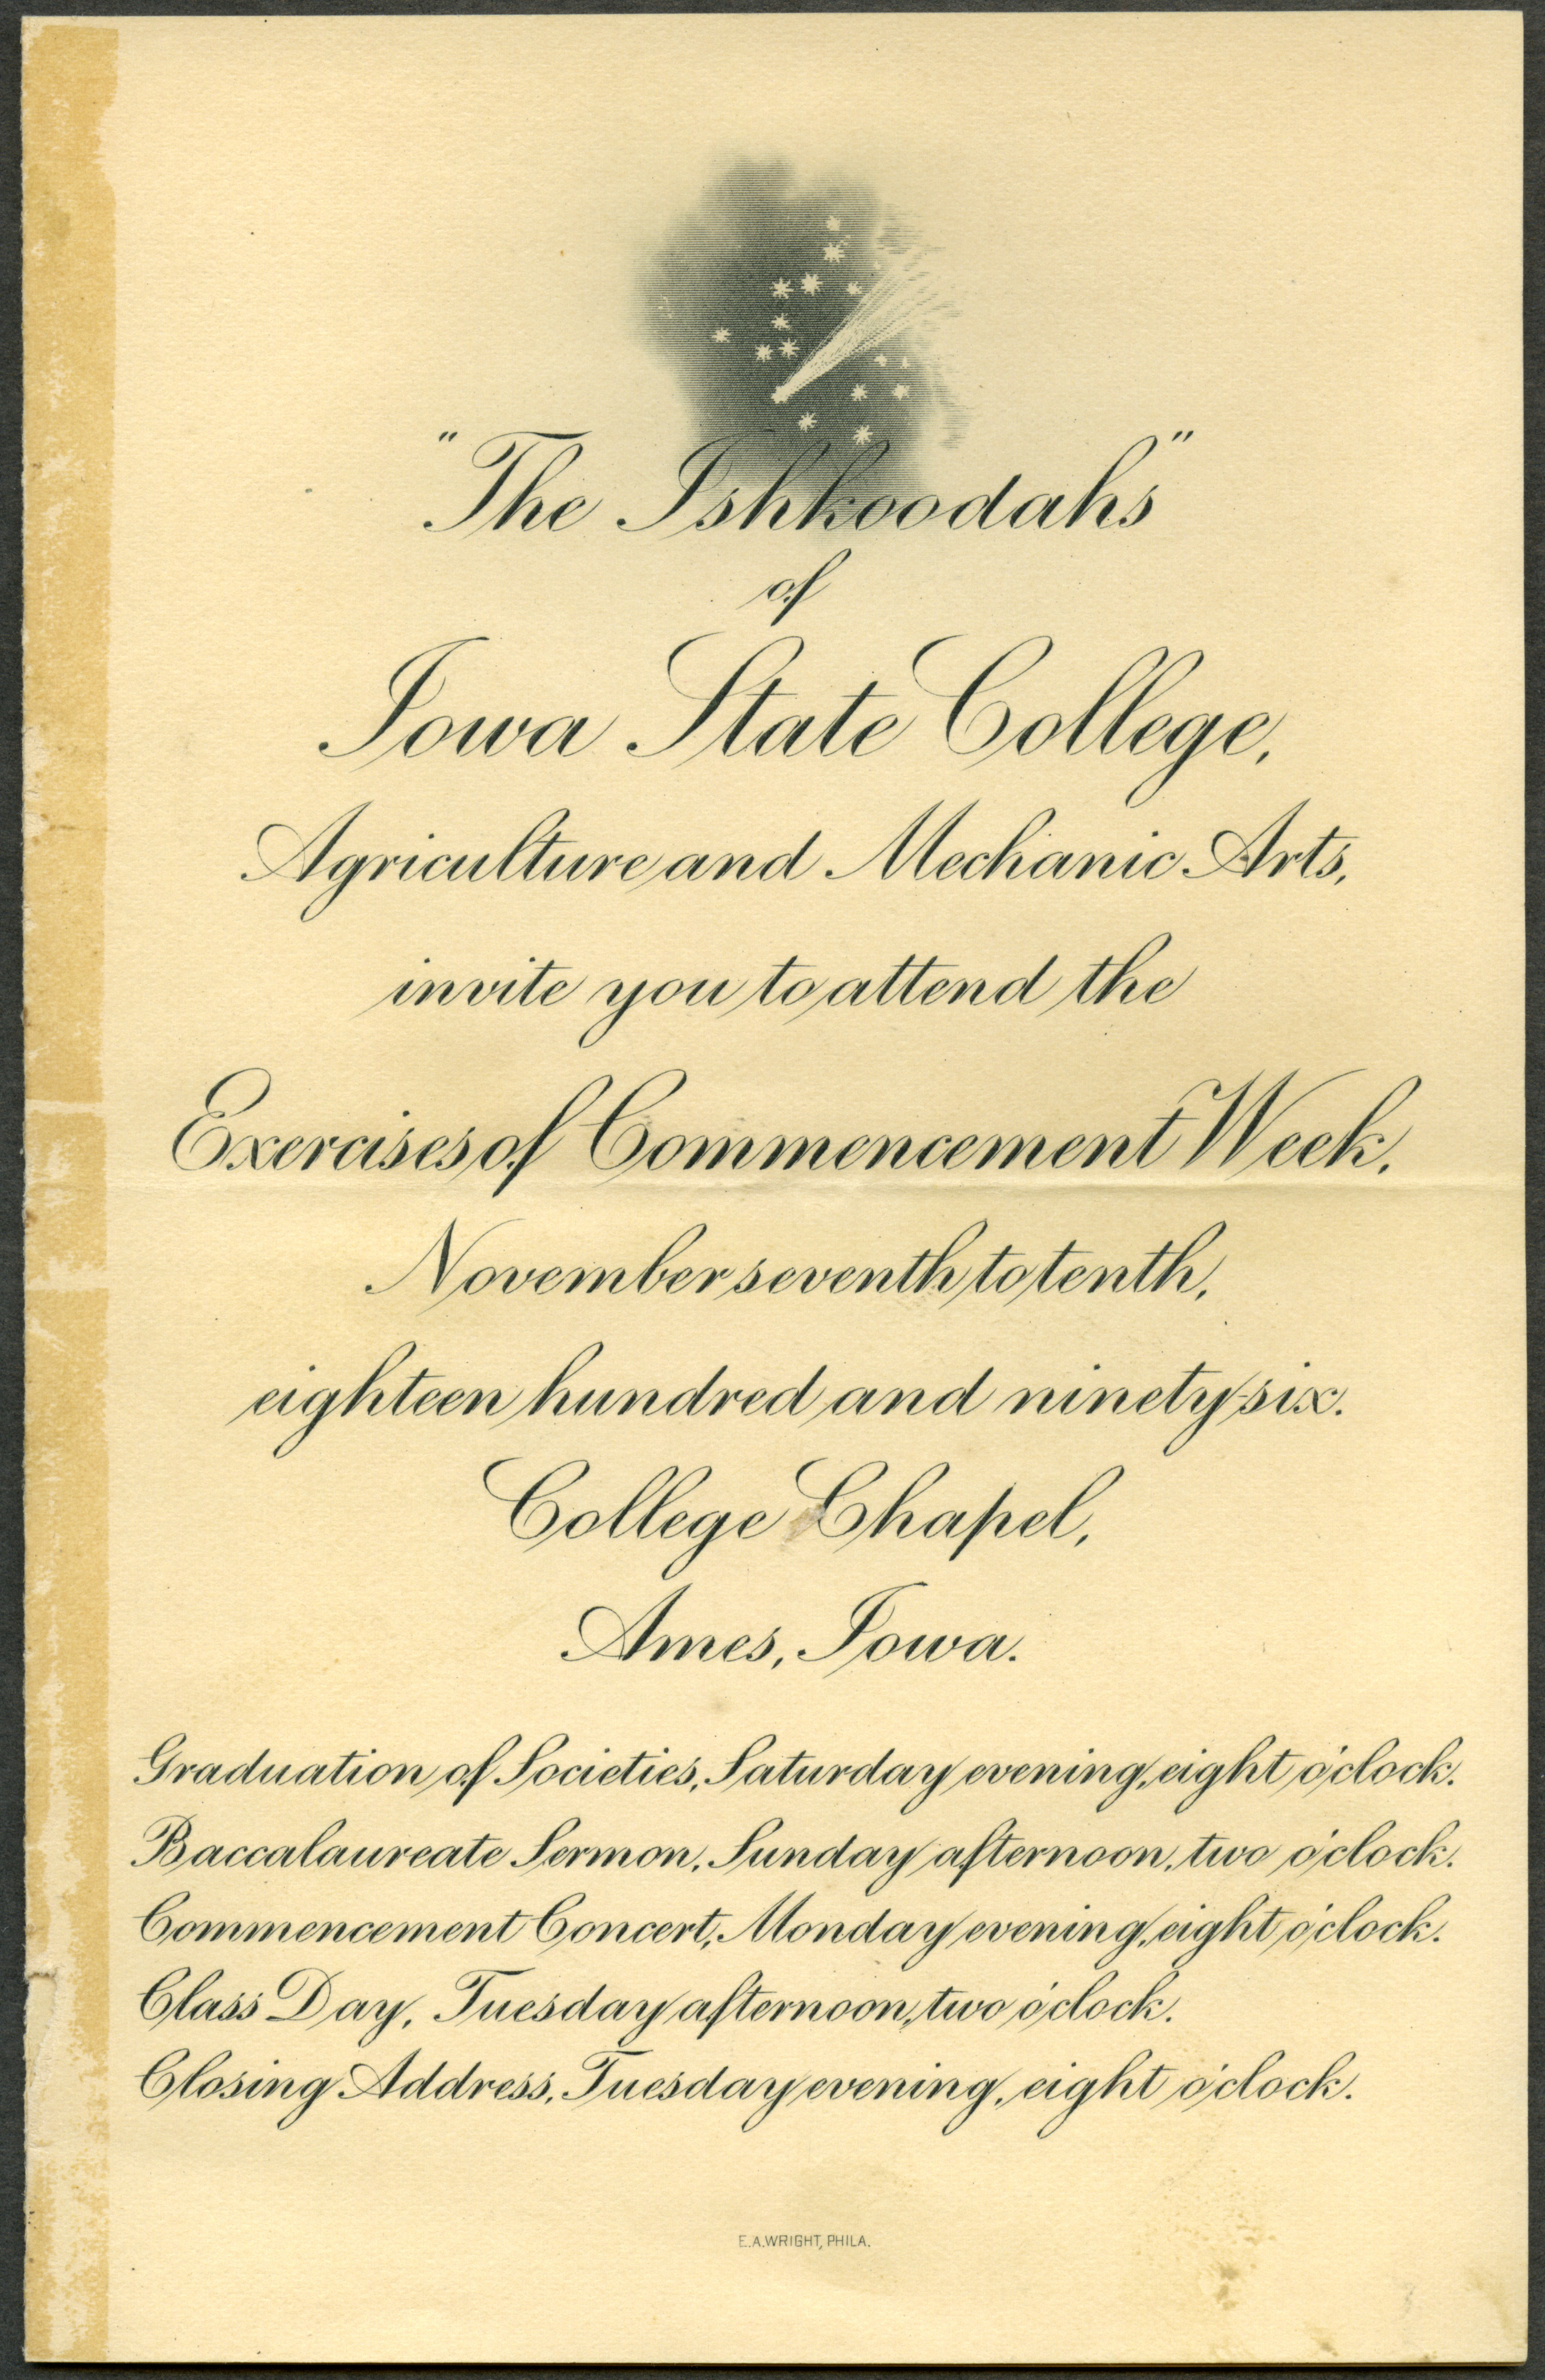 "The Ishkoodahs"
of
Iowa State College,
Agriculture and Mechanic Arts,
invite you to attend the
Exercises of Commencement Week,
November seventh to tenth,
eighteen hundred and ninety-six.
College Chapel,
Ames, Iowa.
Graduation of Societies, Saturday evening, eight o'clock.
Baccalaureate Sermon, Sunday afternoon, two o'clock.
Commencement Concert, Monday evening, eight o'clock.
Class Day, Tuesday afternoon, two o'clock.
Closing Address, Tuesday evening, eight o'clock.
E.A.WRIGHT, PHILA.